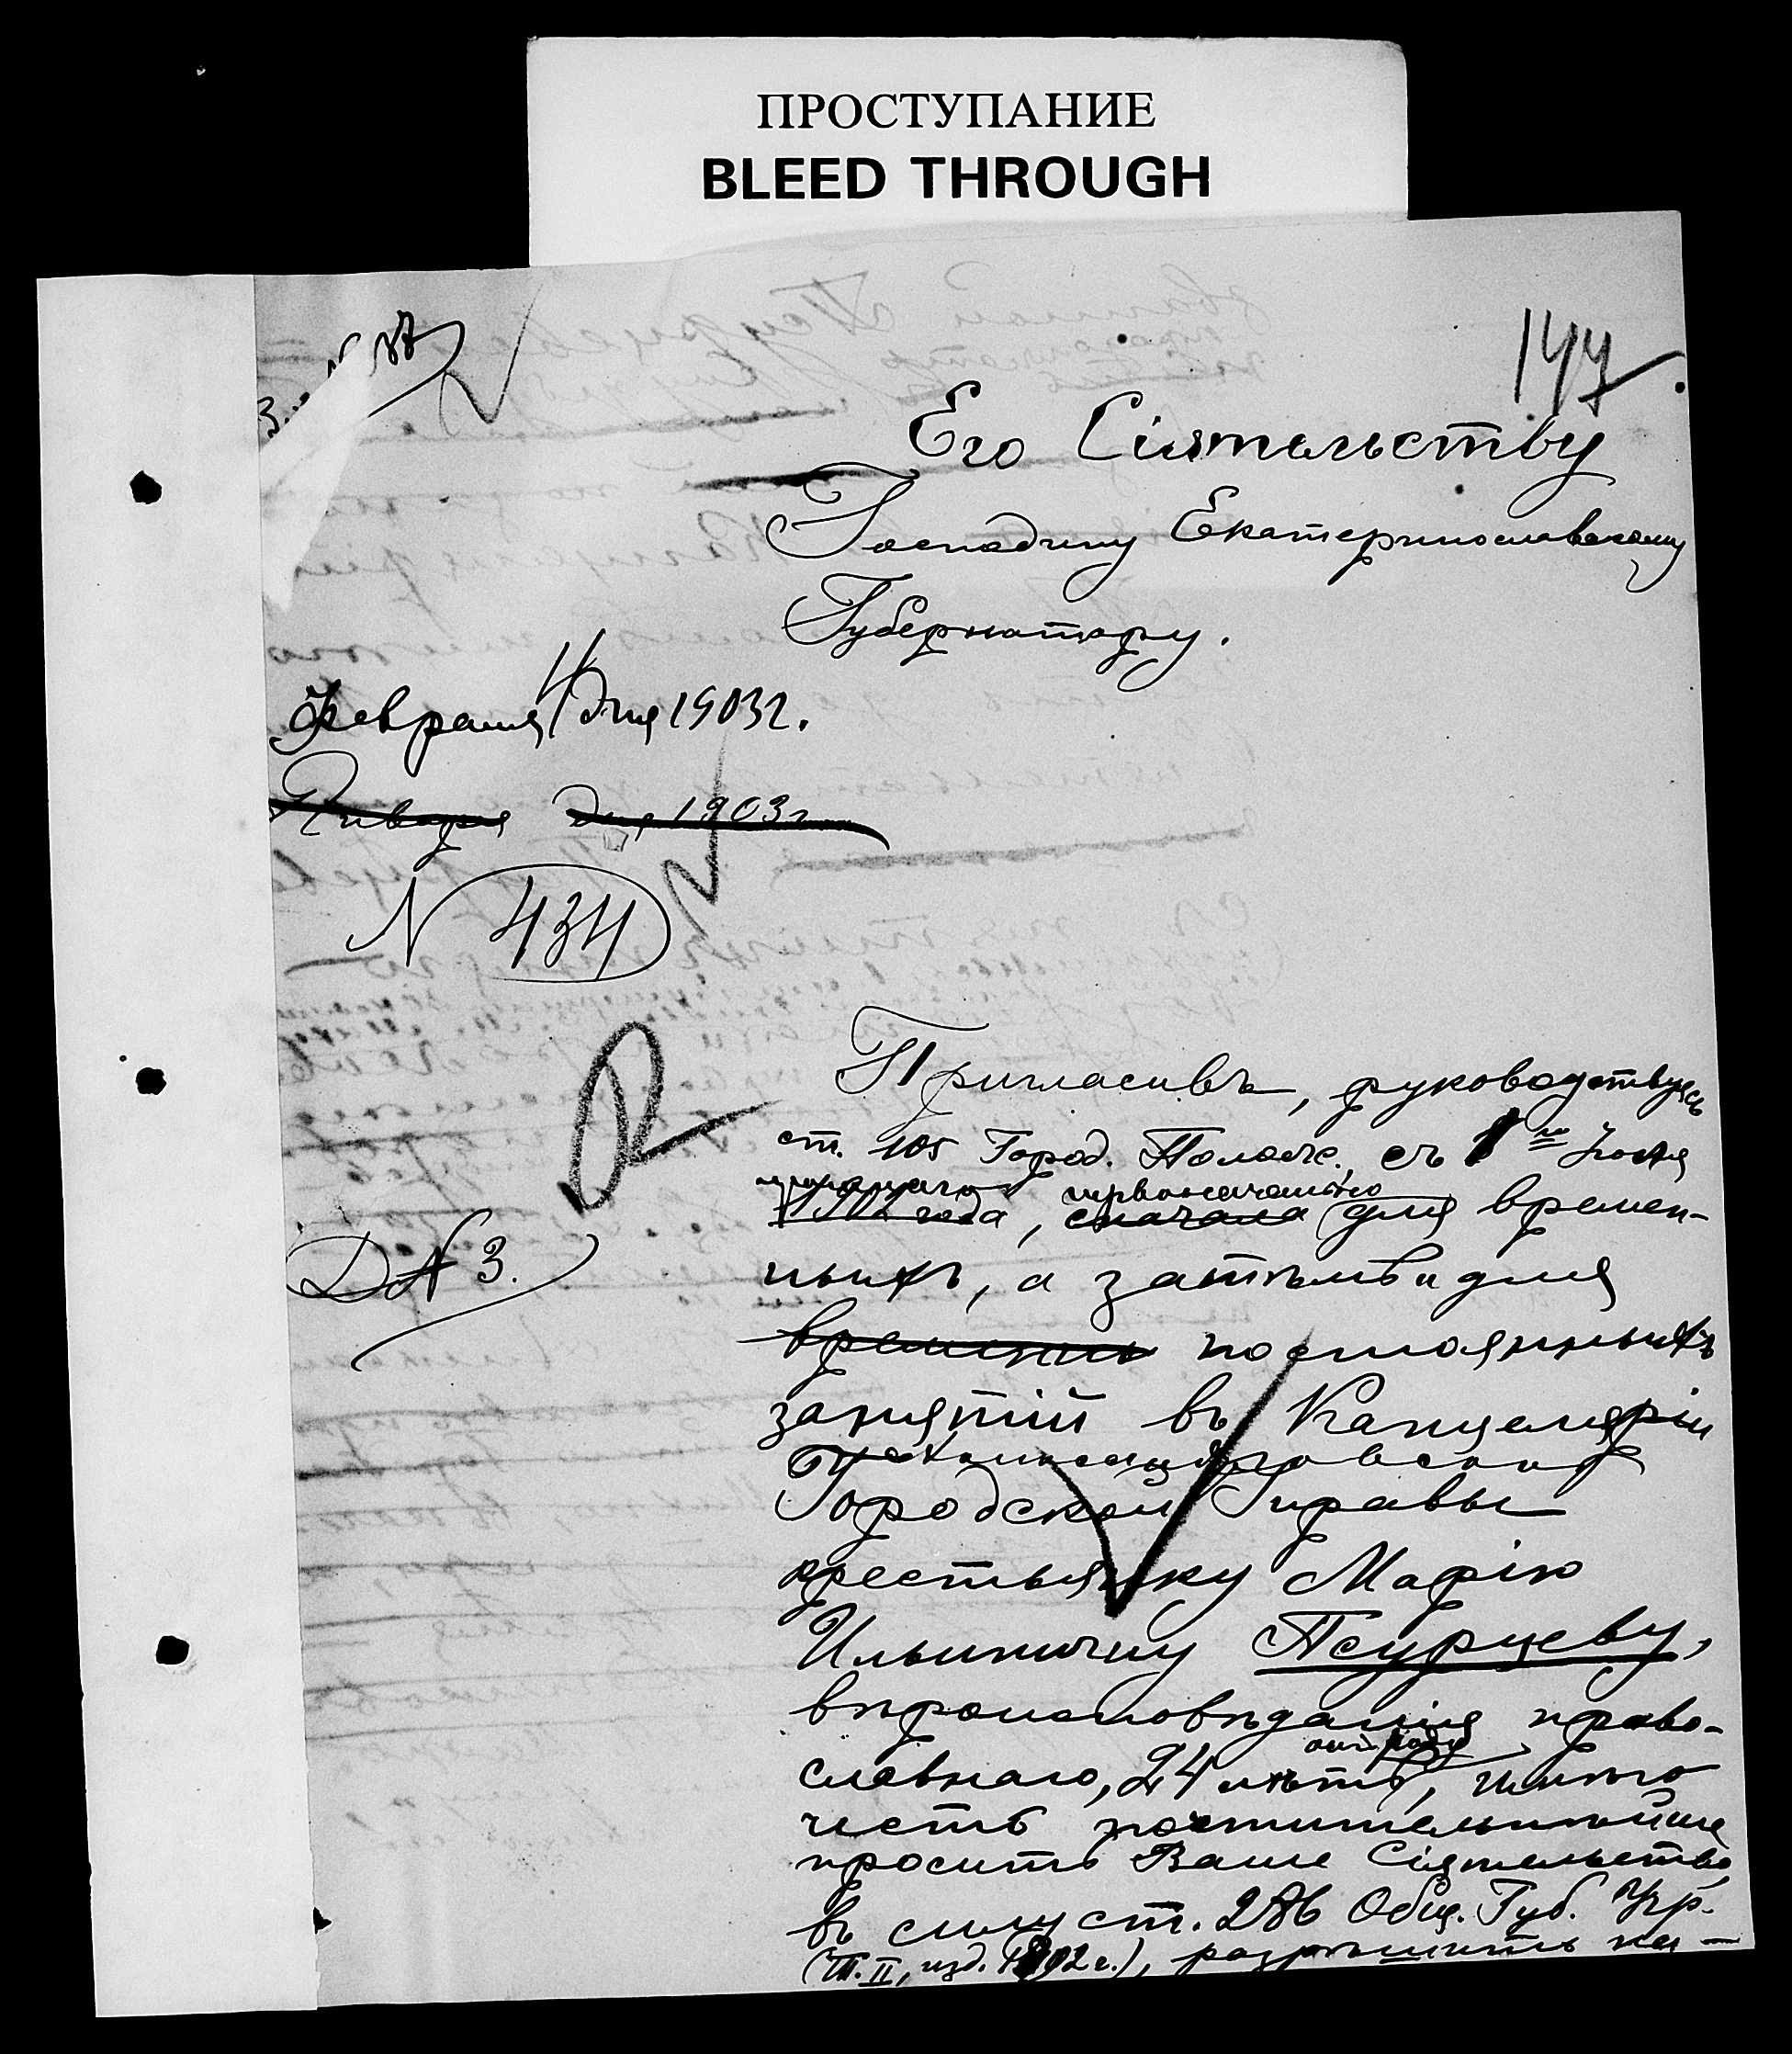 ПРОСТУПАНИЕ
BLEED THROUGH
147.
Его Сіятельству
Господину Екатеринославскому
Губернатору.
Февраля 11 дня 1903 г.
Января дня 1903 г.
N 434
Пригласивъ, руководствуясь
ст. 105 Город. Полож., съ 1го Іюля
1902 года, первоначально сначала для времен-
ныхъ, а затѣмъ и для
времен постоянныхъ
занятій въ Канцеляріи
Городской Управы
крестьянку Марію
Ильиничну Псурцеву,
вѣроисповѣданія право-
славнаго, 24 лѣтъ отъ роду, имѣю
честь почтительнѣйше
просить Ваше Сіятельство,
въ силу ст. 286 Общ. Губ. Учр.
(Т. II, изд. 1892 г.), разрѣшить на-
Д N 3.